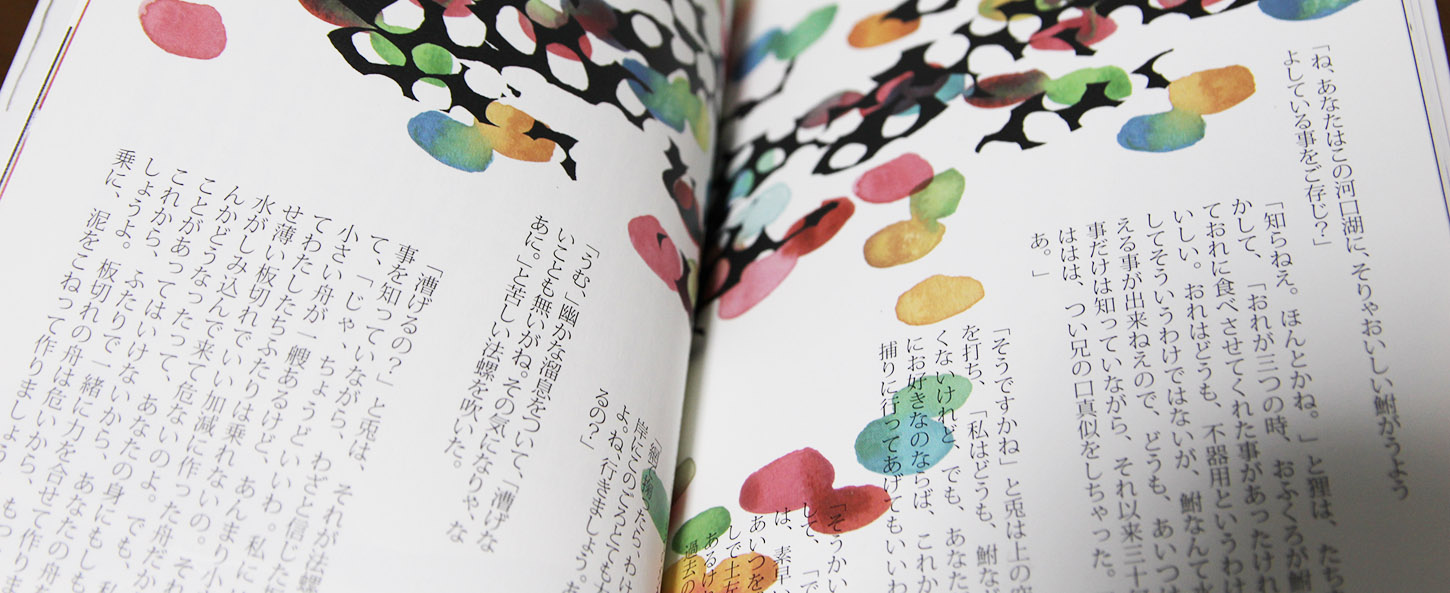 「ね、あなたはこの河口湖に、そりゃおいしい鮒がうよう
よしている事をご存じ？」
「知らねえ。ほんとかね。」と狸は、たち
かして、「おれが三つの時、おふくろが鮒
ておれに食べさせてくれた事があったけれ
いしい。おれはどうも、不器用というわけ
いしい。おれはどうも、不器用というわけではないが、鮒なんて水
してそういうわけではないが、鮒なんて水
える事が出来ねえので、どうも、あいつは
事だけは知っていながら、それ以来三十
ははは、つい兄の口真似をしちゃった。
あ。」
「そうですかね」と兎は上の空
を打ち、「私はどうも、鮒など
くないけれど、でも、あなた
にお好きなのならば、これか
捕りに行ってあげてもいいわ
「そうかい
して、「で
は、素早い
あいつを
しで土左
あるけ
過去の
岸にこのごろとても
よ。ね、行きましょう。
るの？」
「うむ、」幽かな溜息をついて、「漕げな
いことも無いがね。その気になりゃ、な
あに。」と苦しい法螺を吹いた。
「漕げるの？」と兎は、それが法螺
事を知っていながら、わざと信じた
て、「じゃ、ちょうどいいわ。私に
小さい舟が一艘あるけど、あんまり小
てわたしたちふたりは乗れないの。それ
せ薄い板切れでいい加減に作った舟だか
水がしみ込んで来て危ないのよ。でも、
んかどうなったって、あなたの身にもしも
ことがあってはいけないから、あなたの舟
これから、ふたりで一緒に力を合せて作りま
しょうよ。板切れの舟は危いから、もっ
乗に、泥をこねって作りましょう